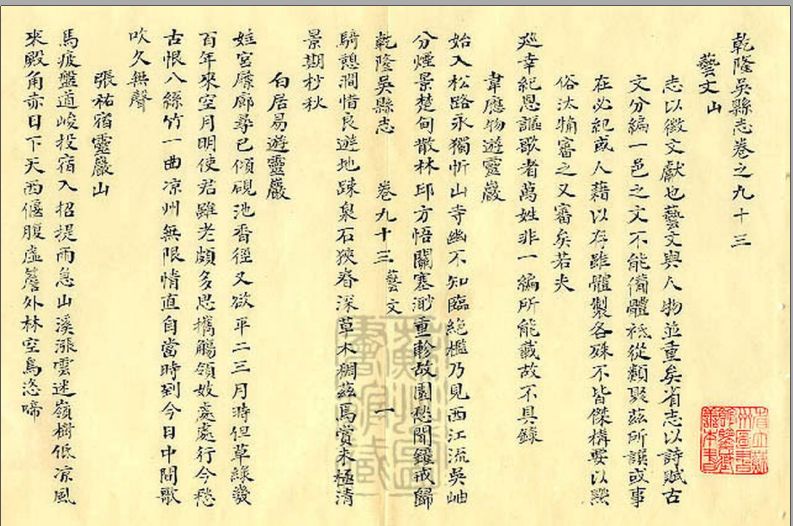 乾隆吳縣志卷之九十三
藝文山
志以徵文獻也藝文與人物並重矣省志以詩賦古
文分編一邑之文不能備體袛從類聚茲所譔或事
在必紀或人藉以存雖體製各殊不皆傑構要以黜
俗汰猥審之又審矣若夫
廵幸紀恩謳歌者萬姓非一編所能載故不具錄
韋應物遊靈巖
始入松路永獨忻山寺幽不知臨絶檻乃見西江流吳岫
分煙景楚甸散林邱方悟關塞渺重軫故園愁聞鐘戒歸
乾隆吳縣志 卷九十三 藝文 一
騎憩澗惜良遊地踈泉石狹春深草木稠茲焉賞未極清
景期杪秋
白居易遊靈巖
娃宮屧廊尋已傾硯池香徑又欲平二三月時但草綠幾
百年來空月明使君雖老頗多思攜觴領妓處處行今愁
古恨入絲竹一曲凉州無限情直自當時到今日中間歌
吹久無聲
張祐宿靈巖山
馬疲盤道峻投宿入招提雨急山溪漲雲迷嶺樹低凉風
來殿角赤日下天西偃腹虛簷外林空鳥恣啼